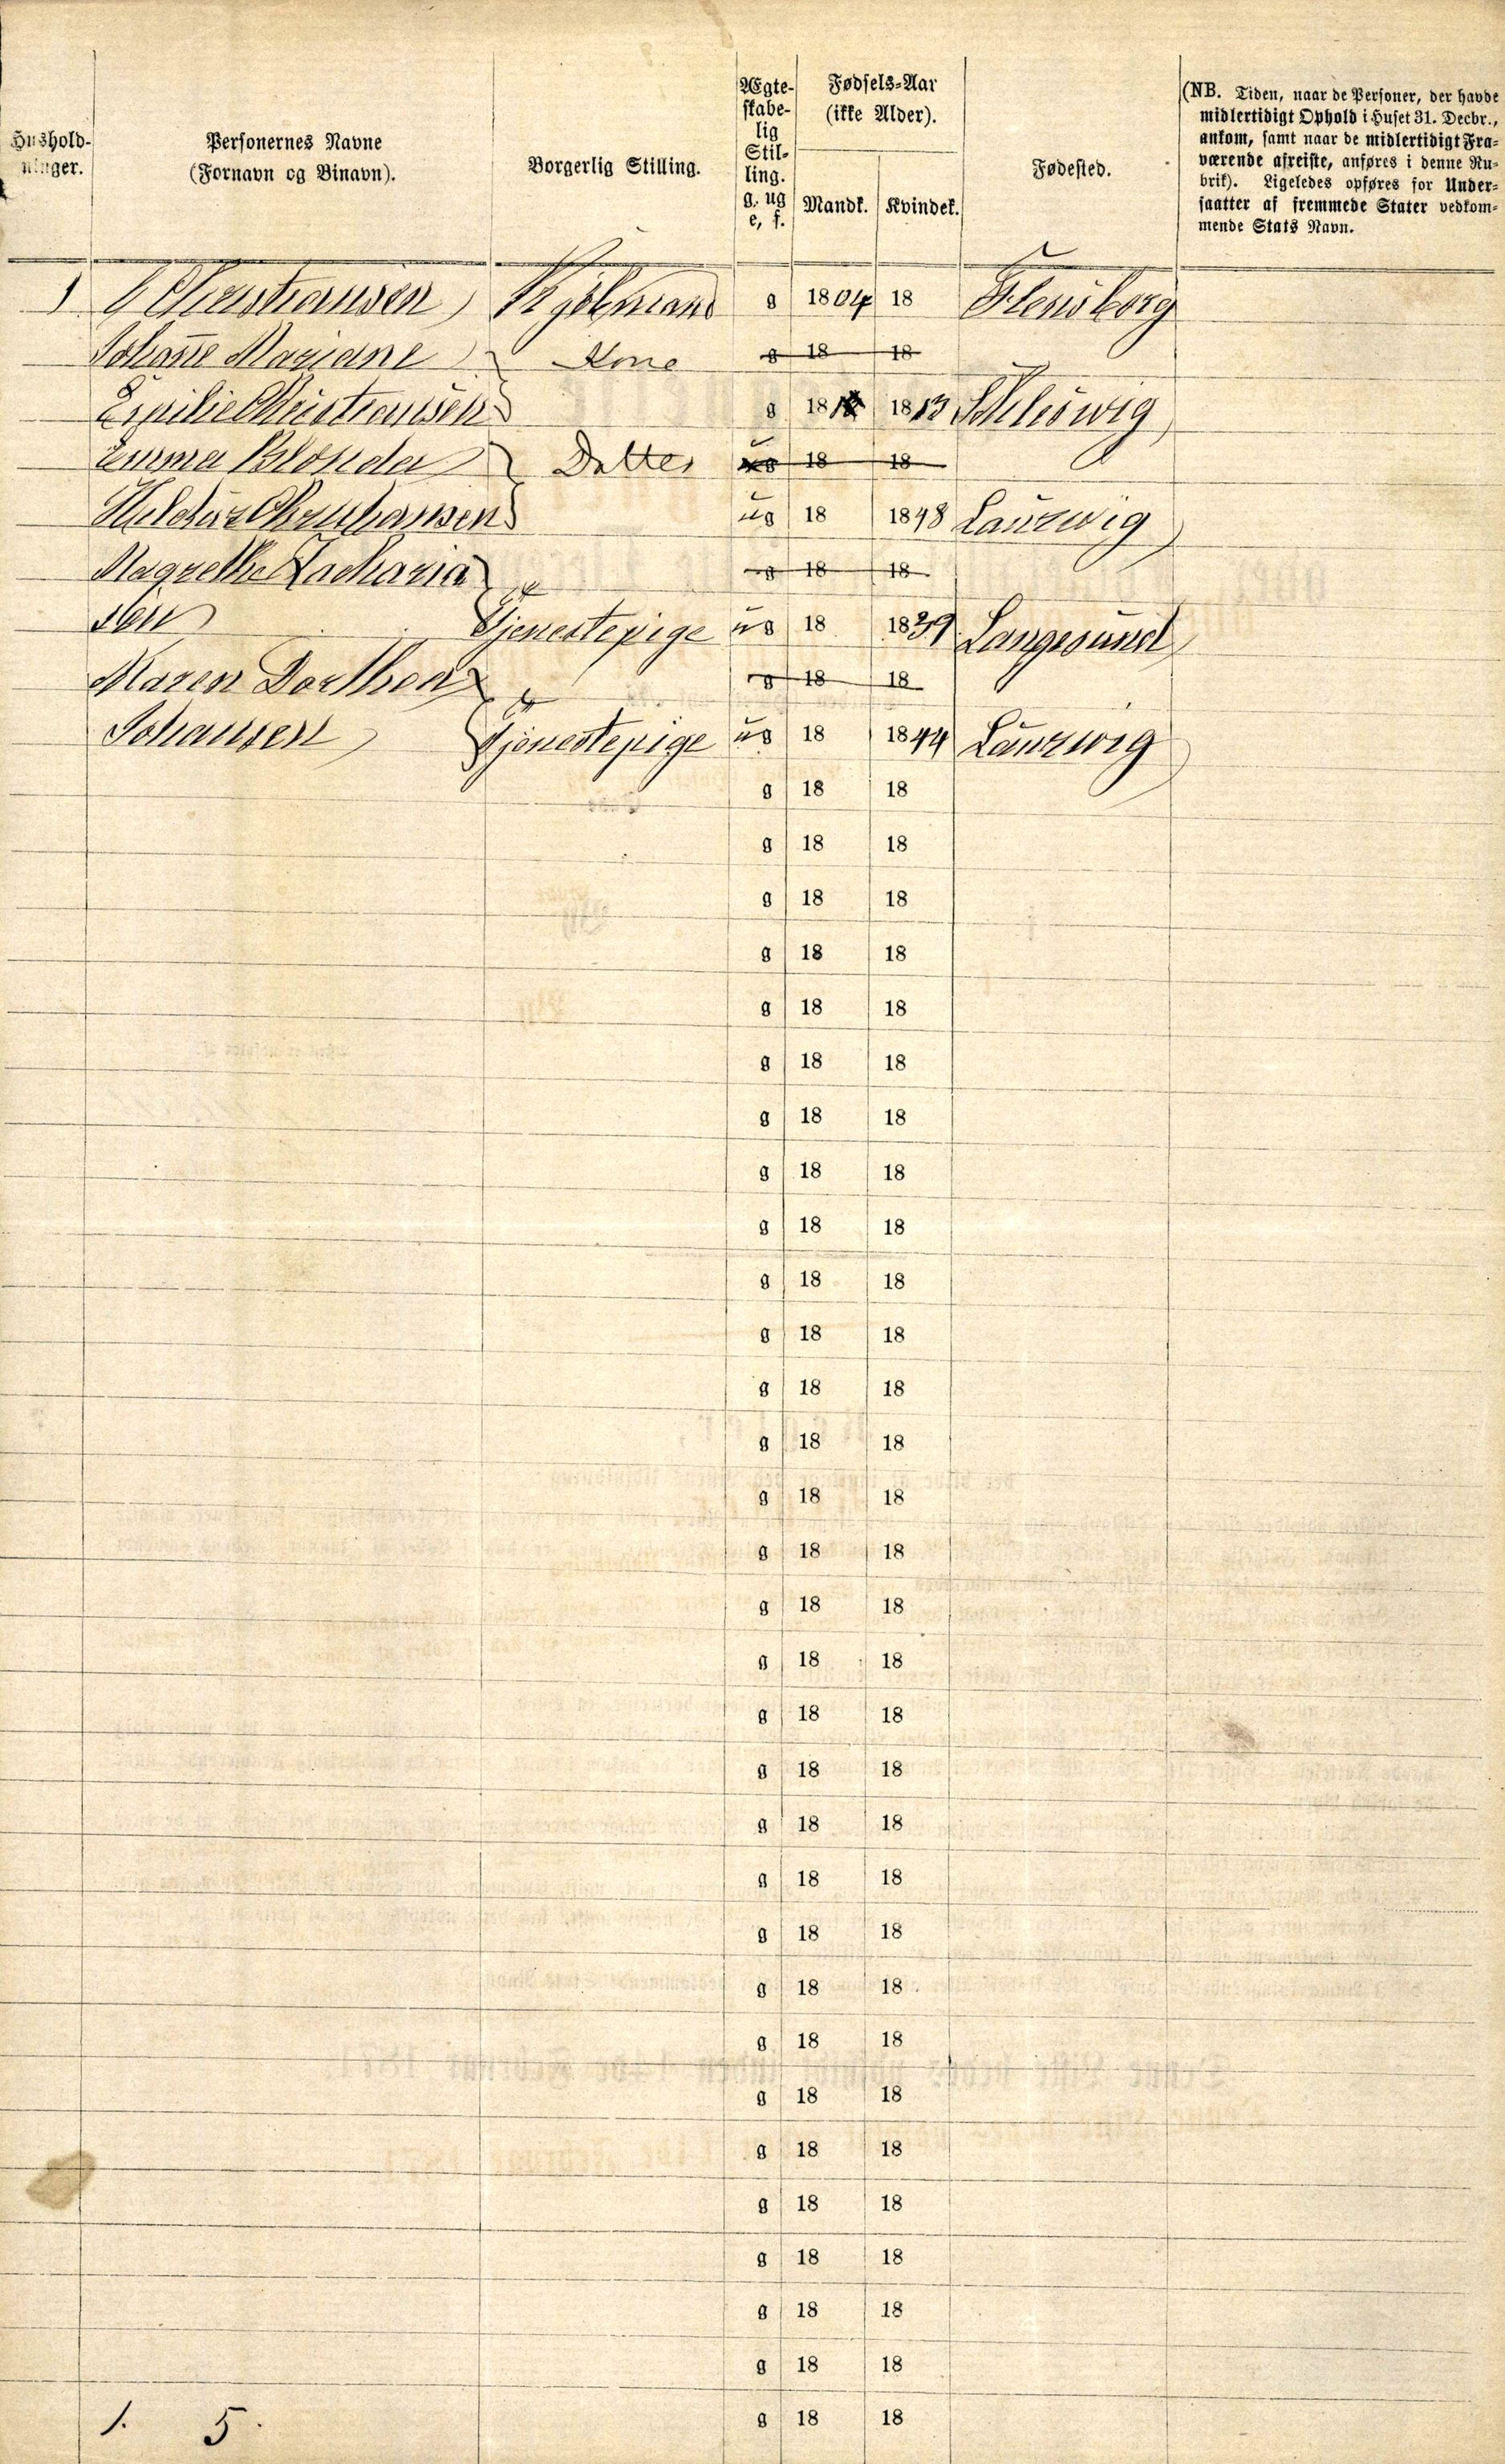 Hushold-
ninger.
Personernes Navne
(Fornavn og Binavn).
Borgerlig Stilling.
Ægte-
skabe-
lig
Stil-
ling.
g, ug
e, f.
Fødsels-Aar
(ikke Alder).
Mandk. Kvindek.
Fødested.
(NB. Tiden, naar de Personer, der havde
midlertidigt Ophold i Huset 31. Decbr.,
ankom, samt naar de midlertidigt Fra-
værende afreiste, anføres i denne Ru-
brik). Ligeledes opføres for Under-
saatter af fremmede Stater vedkom-
mende Stats Navn.
1 Christiansen Kjøbmand g 1804 18 Flensborg
Johanne Mariane Kone g 18 18
Emilie Christiansen g 18 1813 Schleswig
Emma Datter 18 18
Christiansen ug 18 1848 Laurwig
Magrethe Zacharia g 18 18
sen Tjenestepige ug 18 1839 Langesund
Maren Dorthea g 18 18
Johansen Tjenestepige ug 18 1844 Laurwig
g 18 18
g 18 18
g 18 18
g 18 18
g 18 18
g 18 18
g 18 18
g 18 18
g 18 18
g 18 18
g 18 18
g 18 18
g 18 18
g 18 18
g 18 18
g 18 18
g 18 18
g 18 18
g 18 18
g 18 18
g 18 18
g 18 18
g 18 18
g 18 18
g 18 18
g 18 18
g 18 18
g 18 18
g 18 18
g 18 18
1. 5. g 18 18